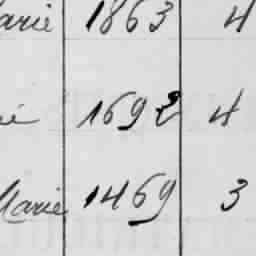 arie 1863 4
ie 1692 4
Marie 1469 3